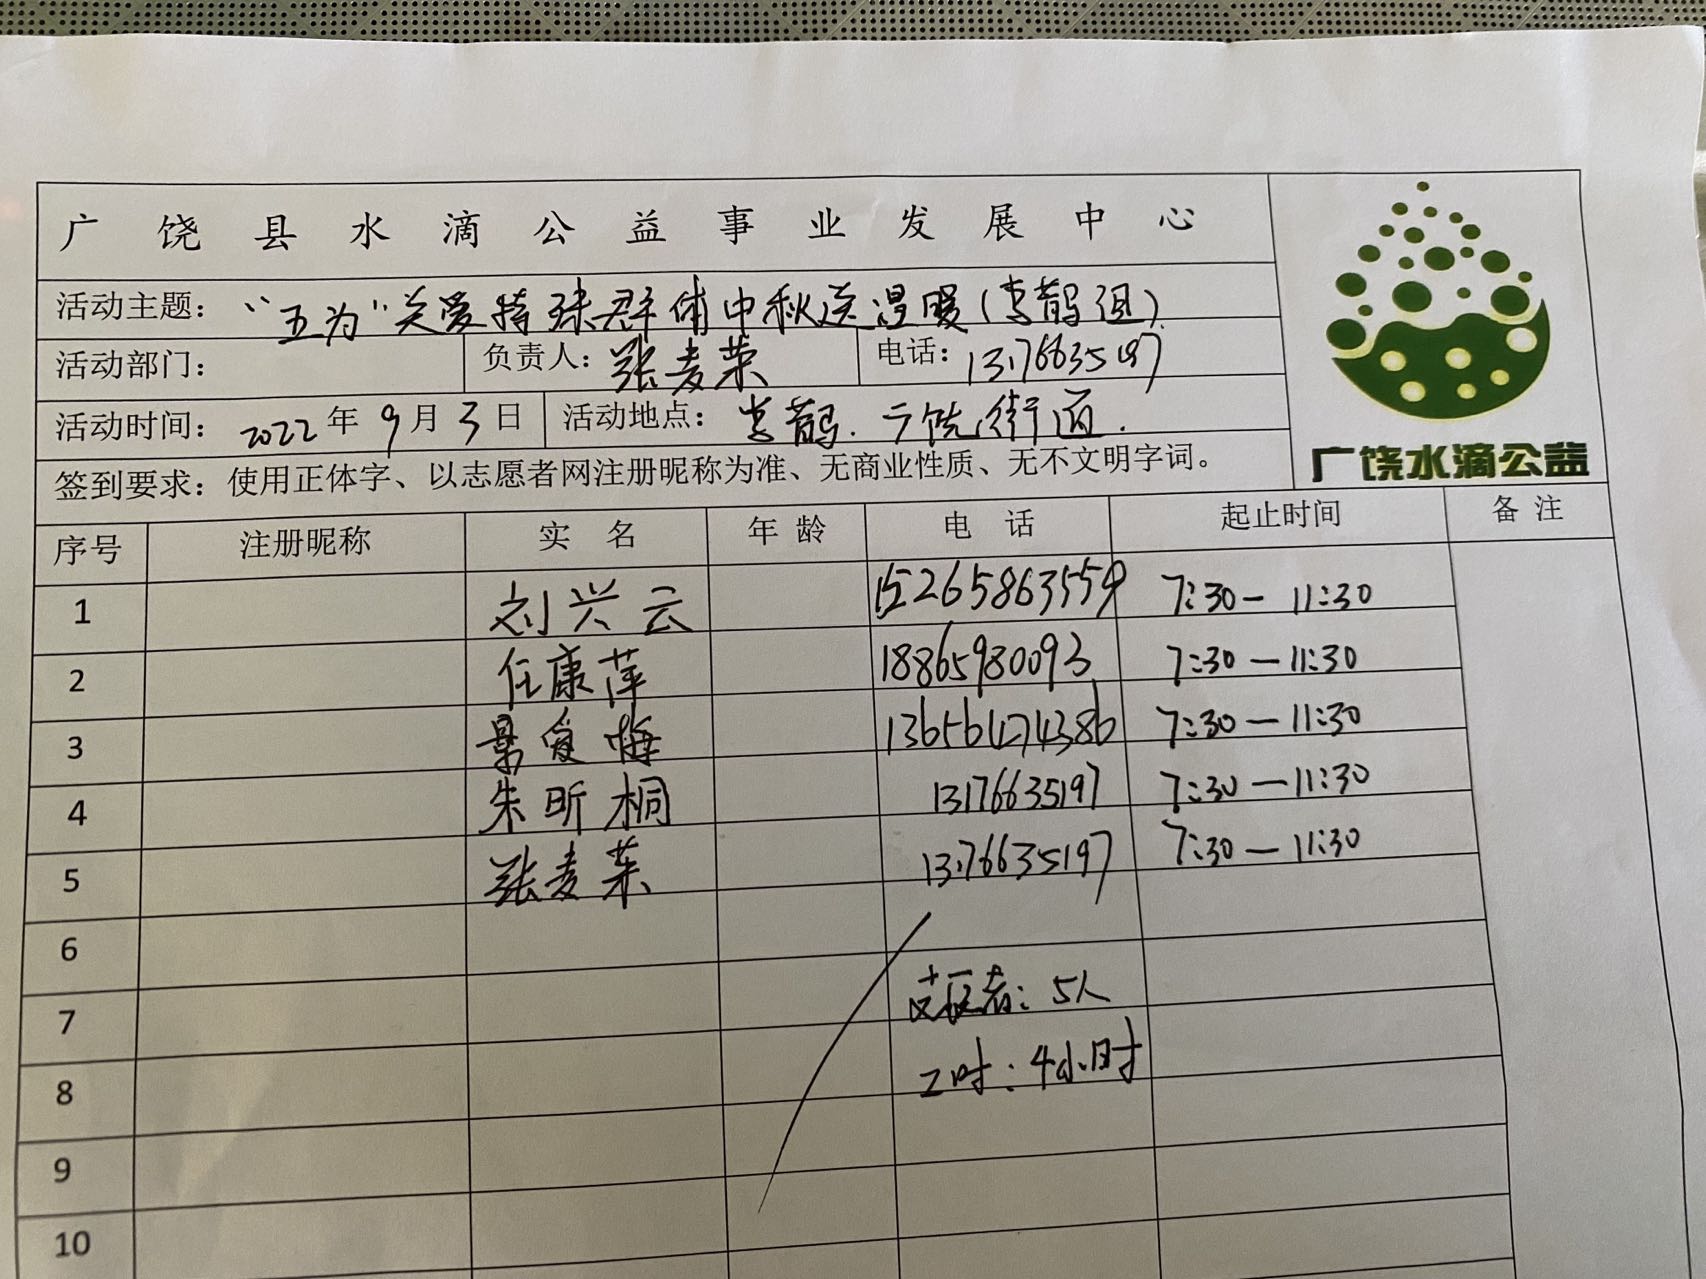 广饶县水滴公益事业发展中心
活动主题：“五为”关爱特殊群体中秋送温暖（李鹊组）
活动部门： 负责人：张麦荣 电话：13176635197
活动时间：2022年9月3日 活动地点：李鹊.广饶街道.
签到要求：使用正体字、以志愿者网注册昵称为准、无商业性质、无不文明字词。
广饶水滴公益
序号 注册昵称 实名 年龄 电话 起止时间 备注
1 刘兴云 15265863559 7:30－11:30
2 任康萍 18865980093 7:30－11:30
3 景爱梅 13656474386 7:30－11:30
4 朱昕桐 13176635197 7:30－11:30
5 张麦荣 13176635197 7:30－11:30
6
7 志愿者：5人
8 工时：4小时
9
10